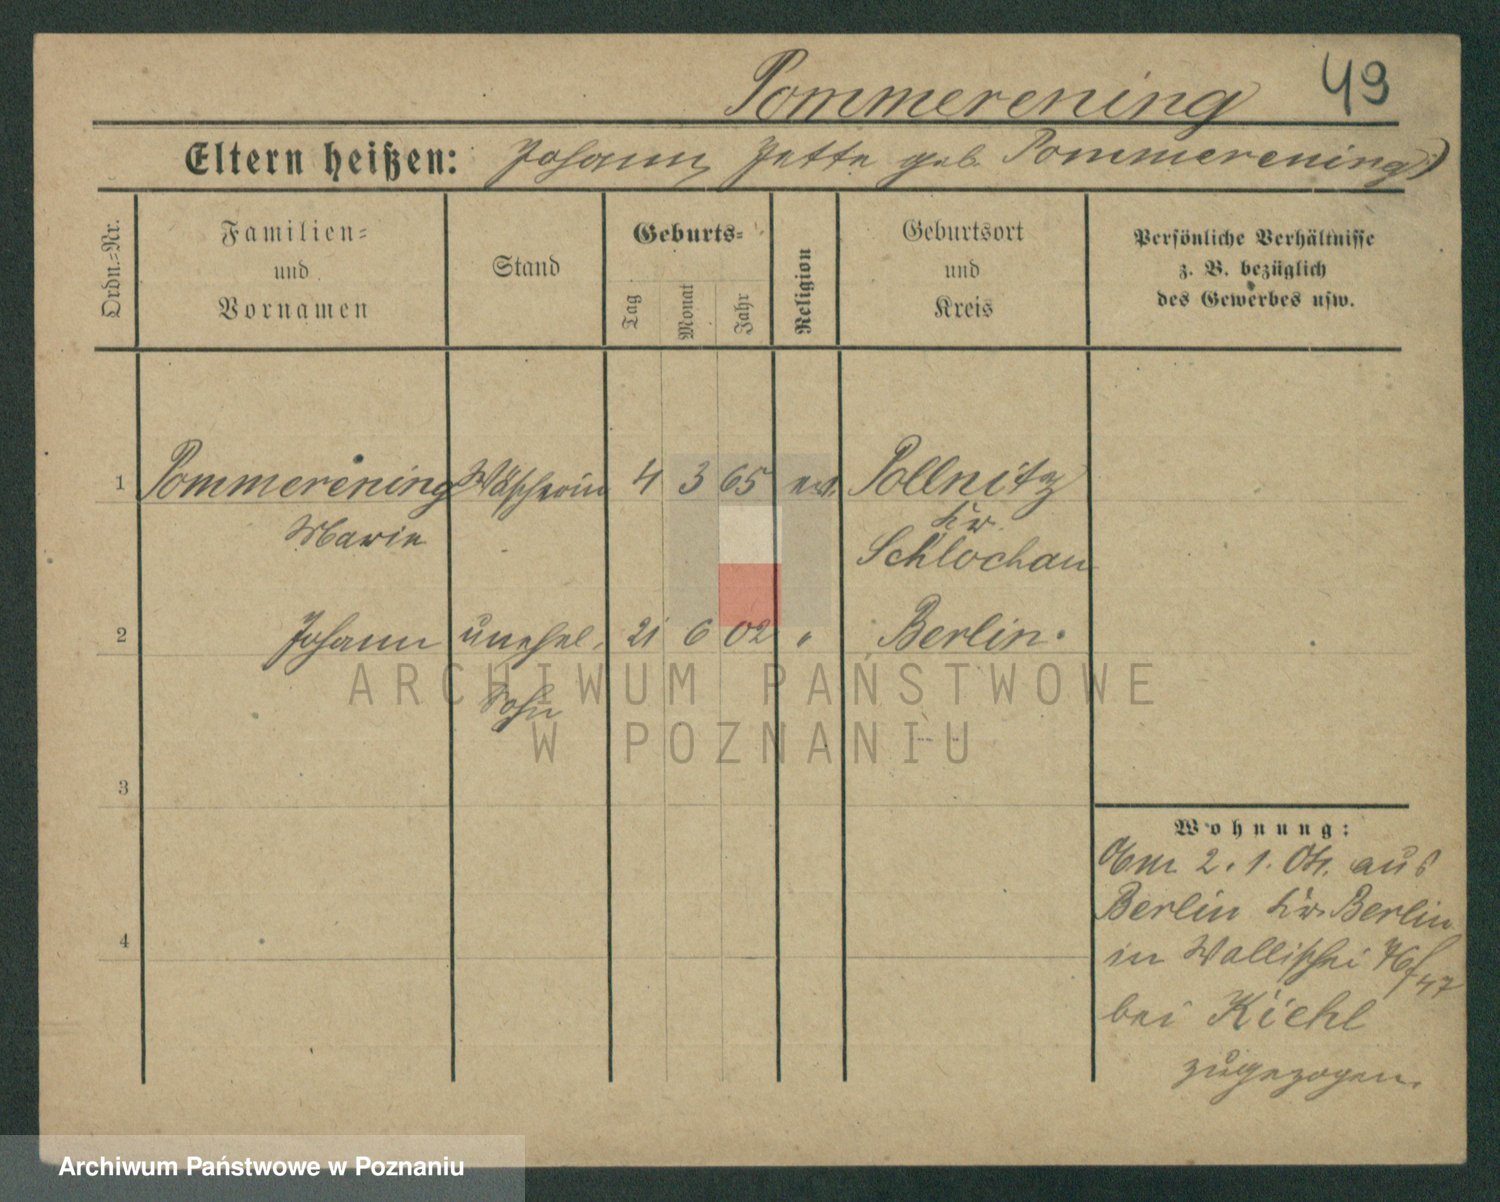 Pommerening 49
Eltern heißen: Johann, Jette geb. Pommerening
Ordn.=Nr.
Familien=
und
Vornamen
Stand
Geburts=
Tag
Monat
Jahr
Religion
Geburtsort
und
Kreis
Persönliche Verhältnisse
z. B. bezüglich
des Gewerbes usw.
1 Pommerening Wäscherin 4 3 65 ev. Pollnitz
Marie Kr.
Schlochau
2 Johann unehel. 21 6 02 " Berlin.
Sohn
3
4
Wohnung:
Am 2. 1. 04. aus
Berlin Kr. Berlin
in Wallischei 46/47
bei Kiehl
zugezogen.
ARCHIWUM PAŃSTWOWE
W POZNANIU
Archiwum Państwowe w Poznaniu